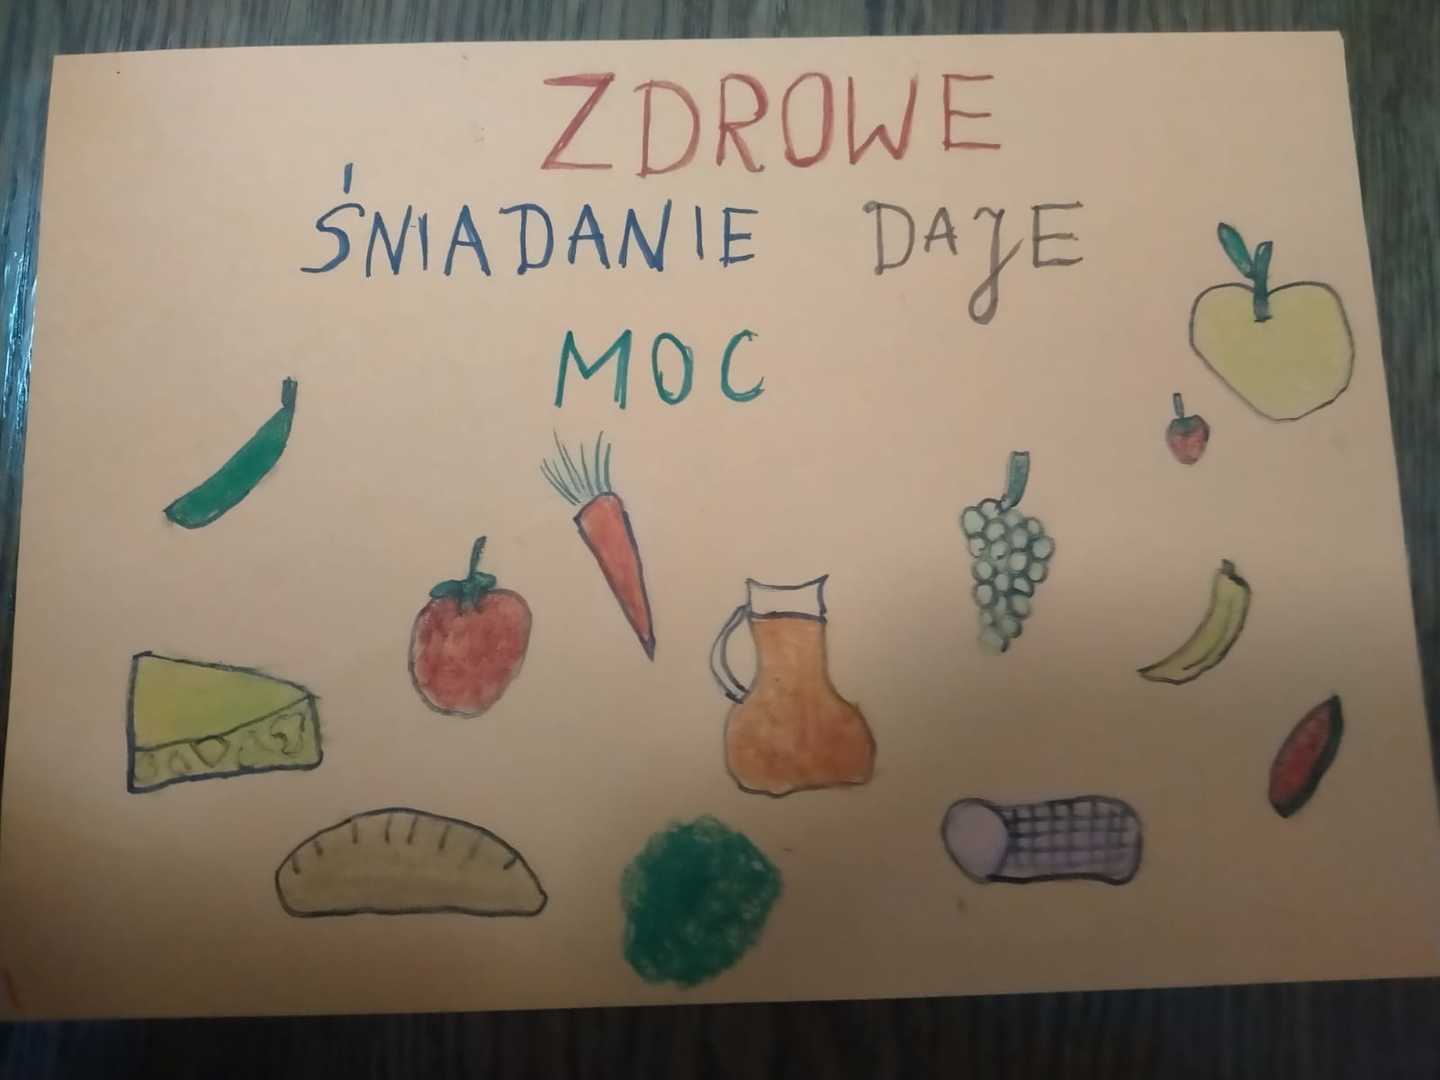 ZDROWE
ŚNIADANIE DAJE
MOC